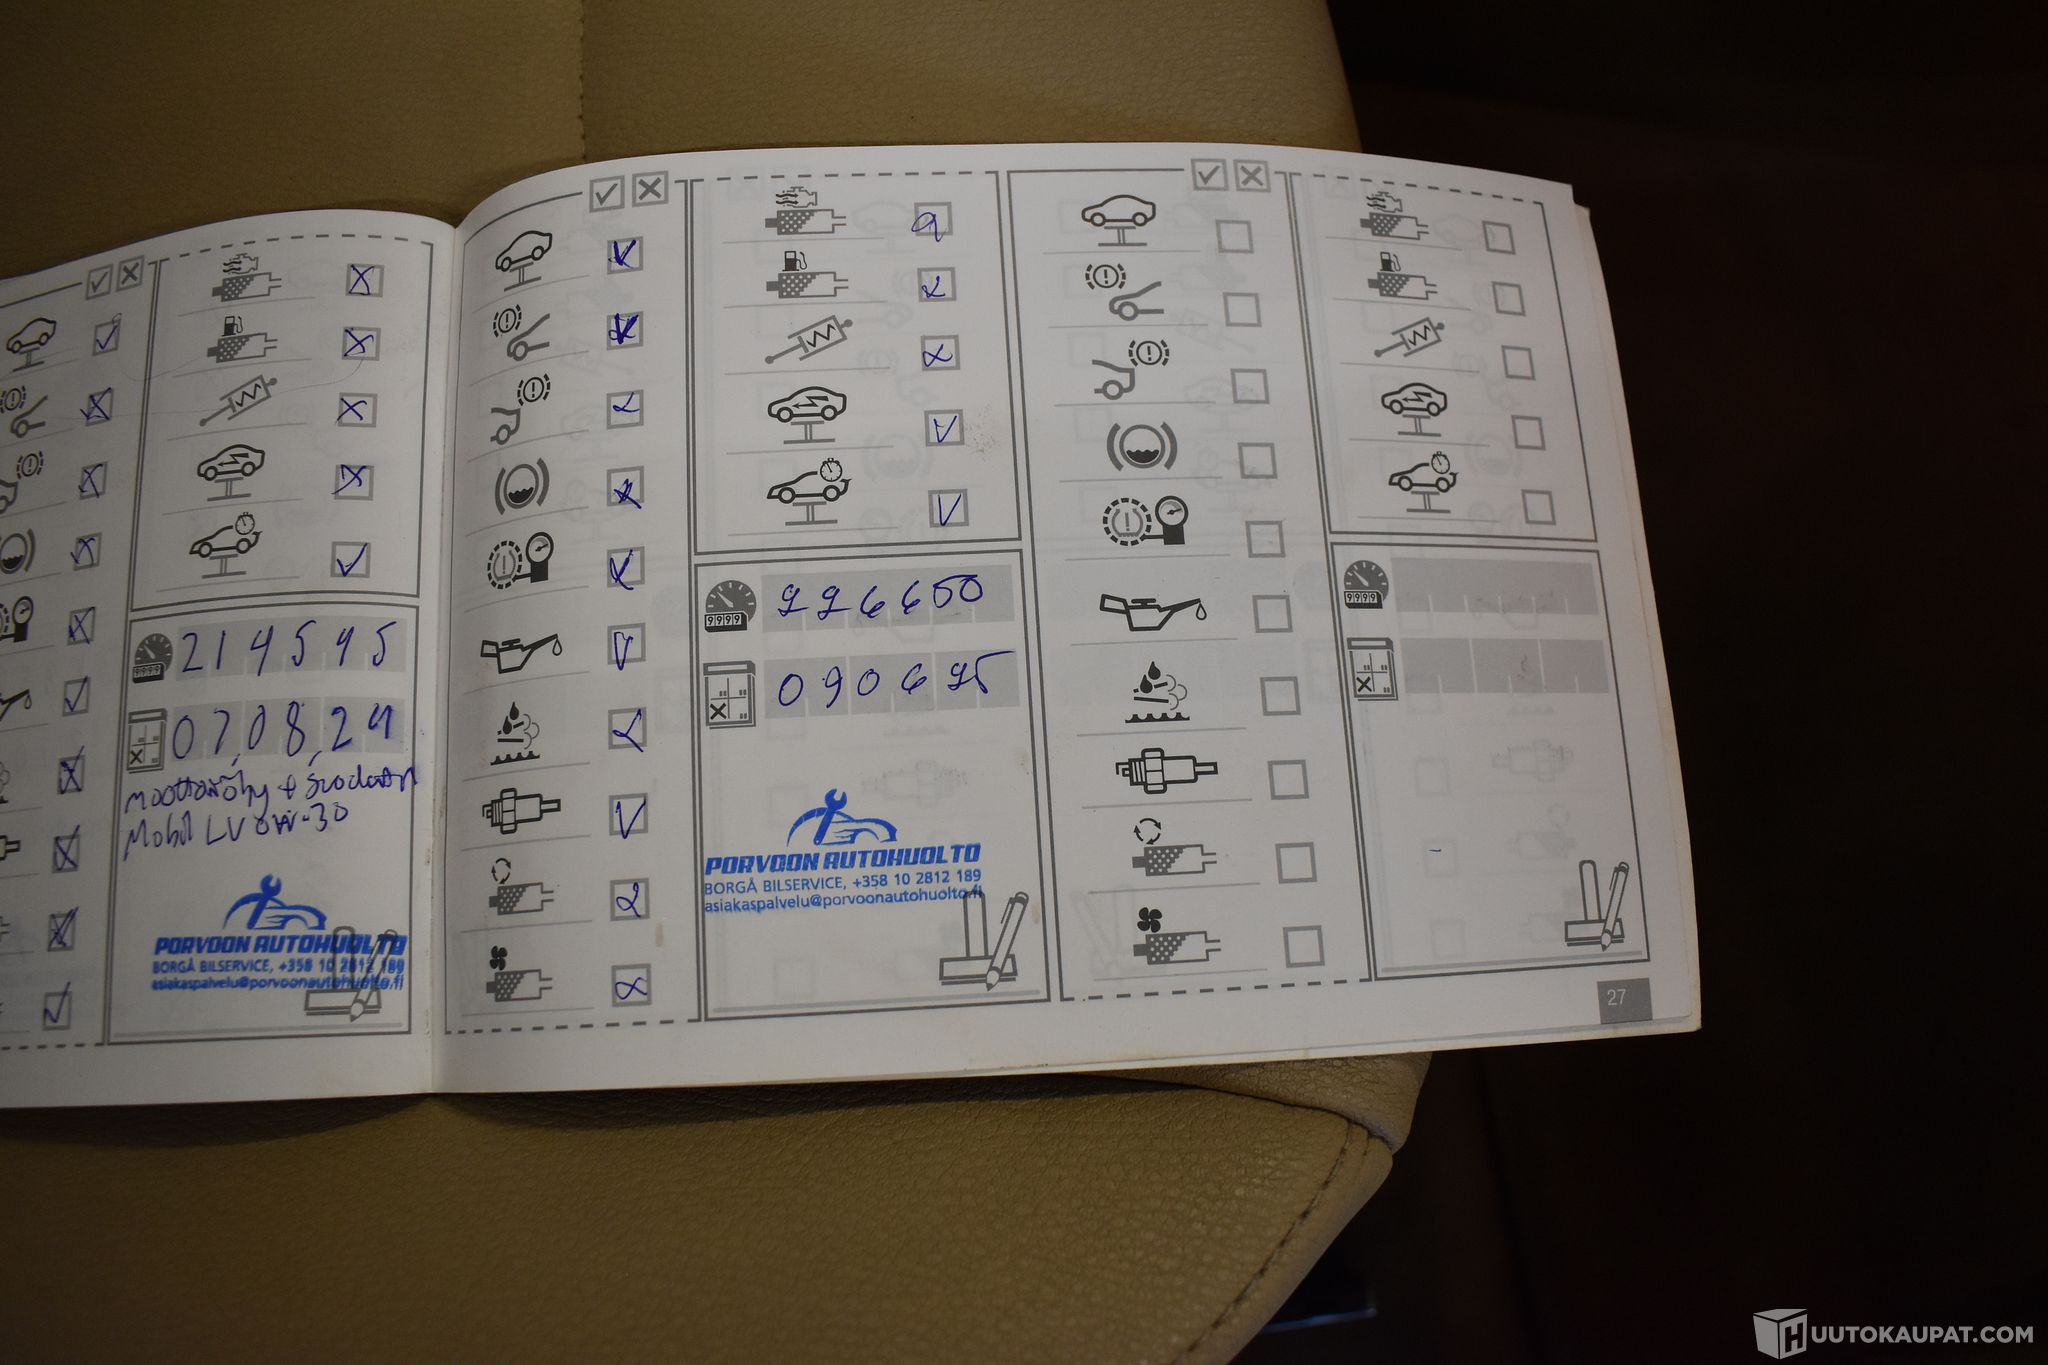 214545
07,08,24
Moottoriöljy + suodatin
Mobil LV 0W-30
PORVOON AUTOHUOLTO
BORGÅ BILSERVICE, +358 10 2812 189
asiakaspalvelu@porvoonautohuolto.fi
9999
226650
090625
PORVOON AUTOHUOLTO
BORGÅ BILSERVICE, +358 10 2812 189
asiakaspalvelu@porvoonautohuolto.fi
9999
27
HUUTOKAUPAT.COM